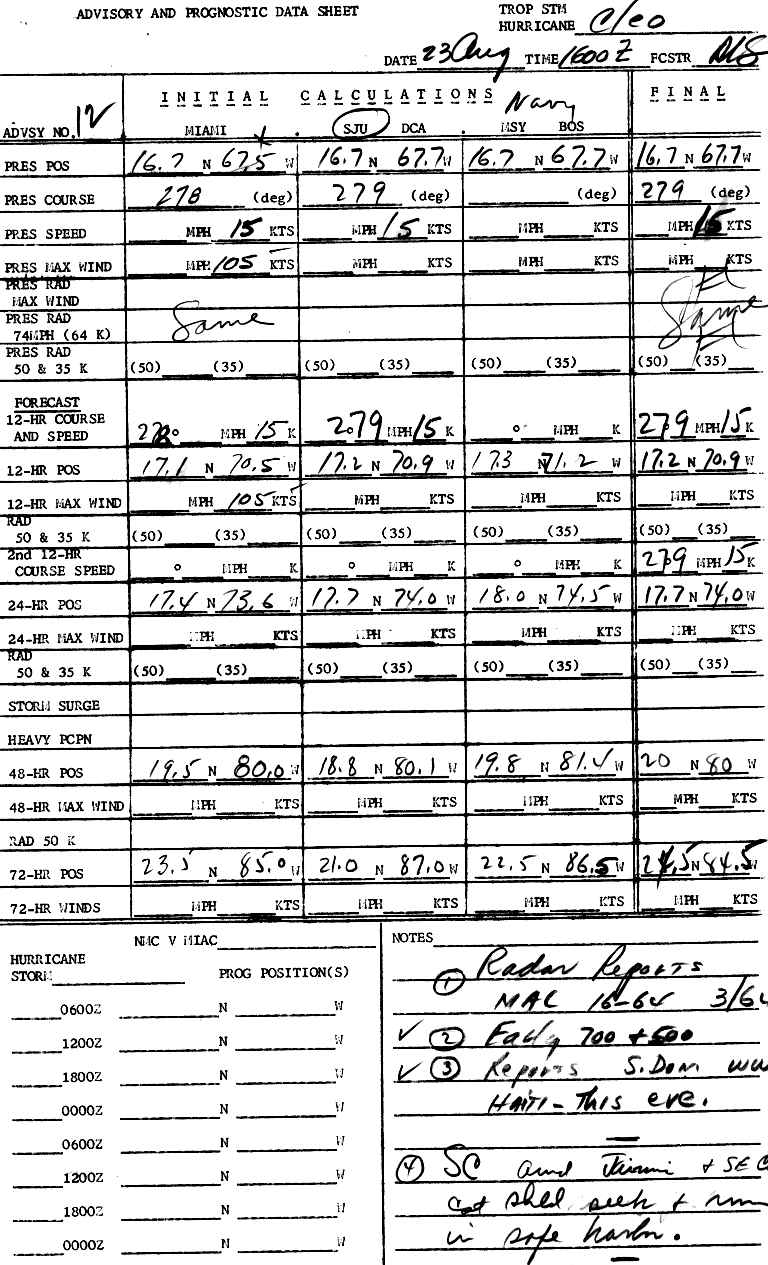 ADVISORY AND PROGNOSTIC DATA SHEET
TROP STM
HURRICANE Cleo
DATE 23 Aug TIME 1600Z FCSTR
INITIAL CALCULATIONS FINAL
Navy
ADVSY NO. 12 MIAMI SJU DCA MSY BOS
PRES POS 16.7 N 67.5 W 16.7 N 67.7 W 16.7 N 67.7 W 16.7 N 67.7 W
PRES COURSE 278 (deg) 279 (deg) (deg) 279 (deg)
PRES SPEED MPH 15 KTS MPH 15 KTS MPH KTS MPH 15 KTS
PRES MAX WIND MPH 105 KTS MPH KTS MPH KTS MPH KTS
PRES RAD
MAX WIND
PRES RAD
74MPH (64 K) Same Same
PRES RAD
50 & 35 K (50) (35) (50) (35) (50) (35) (50) (35)
FORECAST
12-HR COURSE
AND SPEED 278° MPH 15 K 279 MPH 15 K ° MPH K 279 MPH 15 K
12-HR POS 17.1 N 70.5 W 17.2 N 70.9 W 17.3 N 71.2 W 17.2 N 70.9 W
12-HR MAX WIND MPH 105 KTS MPH KTS MPH KTS MPH KTS
RAD
50 & 35 K (50) (35) (50) (35) (50) (35) (50) (35)
2nd 12-HR
COURSE SPEED ° MPH K ° MPH K ° MPH K 279 MPH 15 K
24-HR POS 17.4 N 73.6 W 17.7 N 74.0 W 18.0 N 74.5 W 17.7 N 74.0 W
24-HR MAX WIND MPH KTS MPH KTS MPH KTS MPH KTS
RAD
50 & 35 K (50) (35) (50) (35) (50) (35) (50) (35)
STORM SURGE
HEAVY PCPN
48-HR POS 19.5 N 80.0 W 18.8 N 80.1 W 19.8 N 81.4 W 20 N 80 W
48-HR MAX WIND MPH KTS MPH KTS MPH KTS MPH KTS
RAD 50 K
72-HR POS 23.5 N 85.0 W 21.0 N 87.0 W 22.5 N 86.5 W 24.5 N 84.5 W
72-HR WINDS MPH KTS MPH KTS MPH KTS MPH KTS
NMC V MIAC
HURRICANE
STORM PROG POSITION(S)
0600Z N W
1200Z N W
1800Z N W
0000Z N W
0600Z N W
1200Z N W
1800Z N W
0000Z N W
NOTES
① Radar Reports
MAC 16-64 3/64
✓ ② Early 700 + 500
✓ ③ Reports S. Dom
HAITI - This eve.
④ SC and + SE C
shld seek +
in safe harbor.